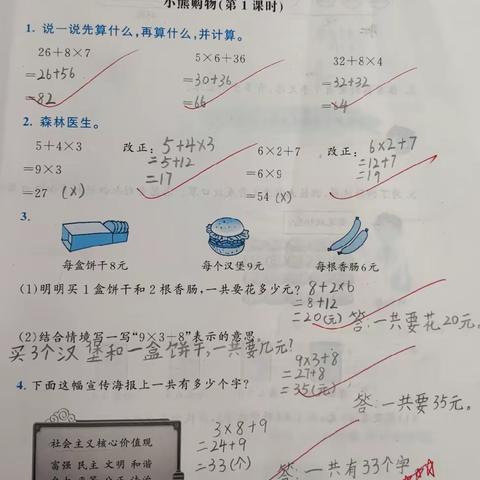 小熊购物(第1课时)
1. 说一说先算什么,再算什么,并计算。
26+8×7 5×6+36 32+8×4
=26+56 =30+36 =32+32
=82 =66 =64
2. 森林医生。
5+4×3 改正: 5+4×3 6×2+7 改正: 6×2+7
=9×3 =5+12 =6×9 =12+7
=27 (×) =17 =54 (×) =19
3.
每盒饼干8元 每个汉堡9元 每根香肠6元
(1)明明买1盒饼干和2根香肠,一共要花多少元? 8+2×6
=8+12
=20(元) 答:一共要花20元。
(2)结合情境写一写“9×3+8”表示的意思
买3个汉堡和一盒饼干,一共要几元?
9×3+8
=27+8
=35(元)
答:一共要35元。
4. 下面这幅宣传海报上一共有多少个字?
3×8+9
=24+9
=33(个)
答:一共有33个字
社会主义核心价值观
富强 民主 文明 和谐